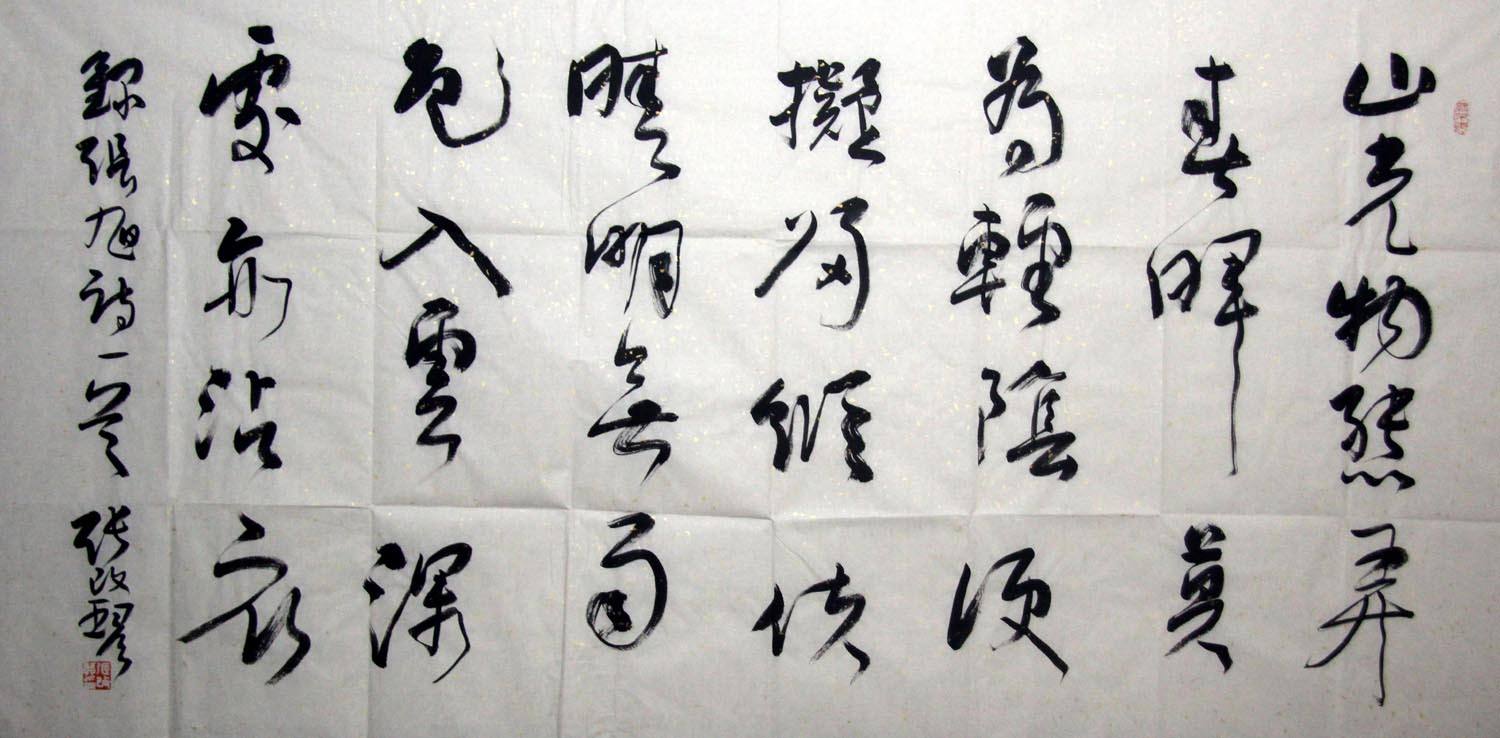 山光物態弄
春暉莫
為輕陰便
擬歸縱使
晴明無雨
色入雲深
處亦沾衣
錄張旭詩一首 張改琴